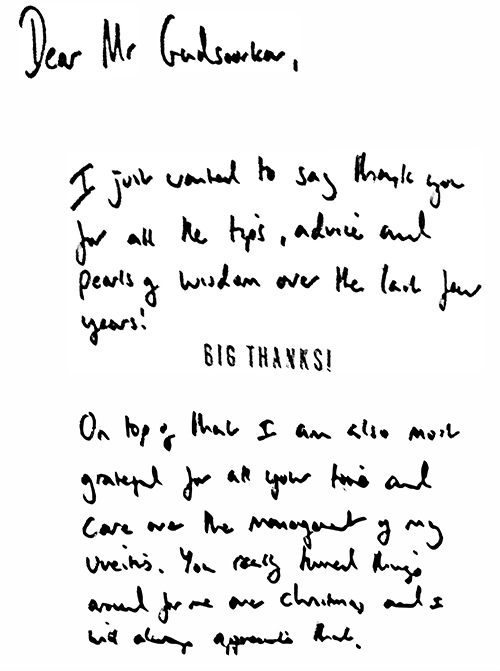 Dear Mr Gudsoorkar,
I just wanted to say thank you
for all the tips, advice and
pearls of wisdom over the last few
years!
BIG THANKS!
On top of that I am also most
grateful for all your time and
care over the management of my
uveitis. You really turned things
around for me over Christmas and I
will always appreciate that.